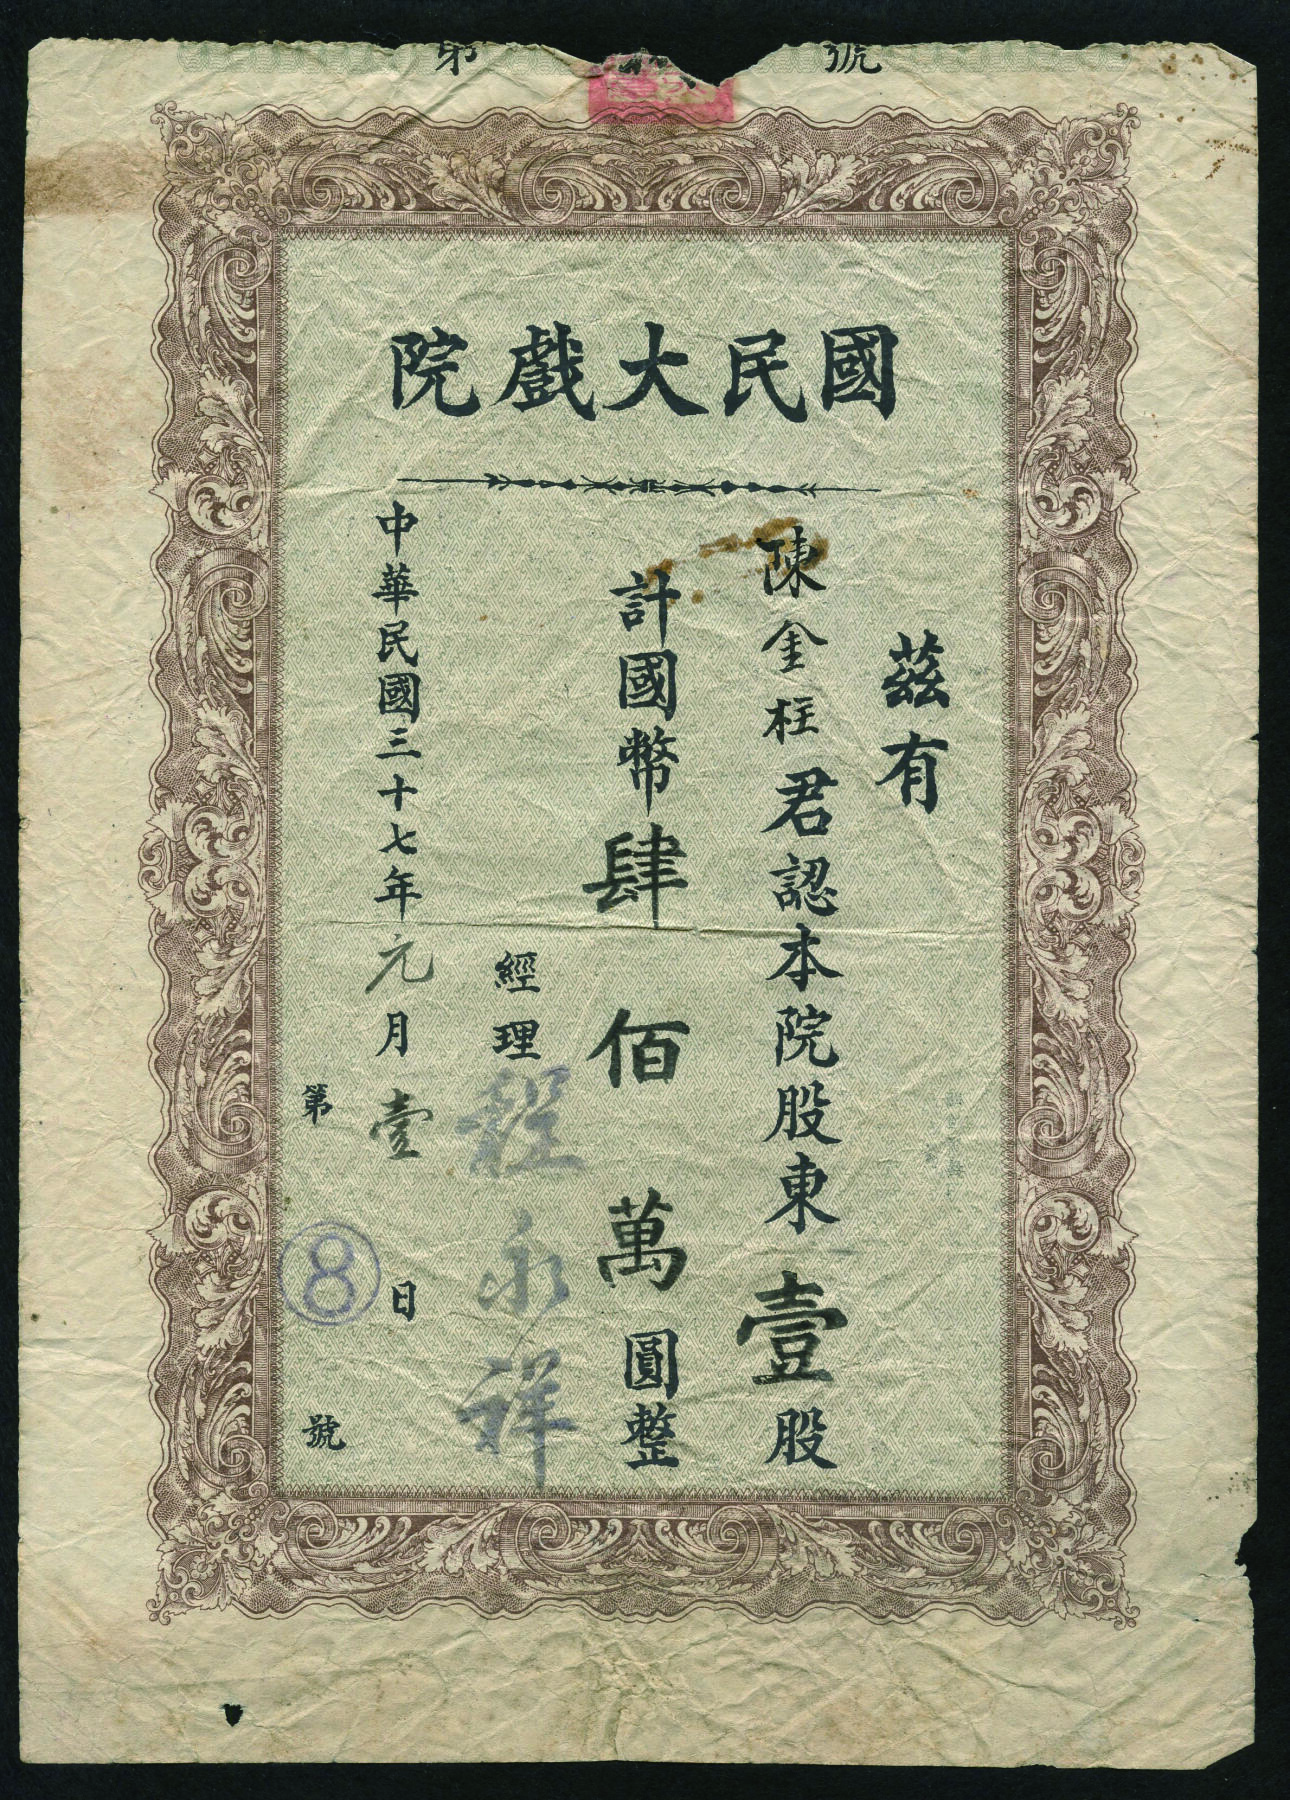 第 號
國民大戲院
茲有
陳金柱君認本院股東壹股
計國幣肆佰萬圓整
經理 程永祥
中華民國三十七年元月壹日
第 8 號